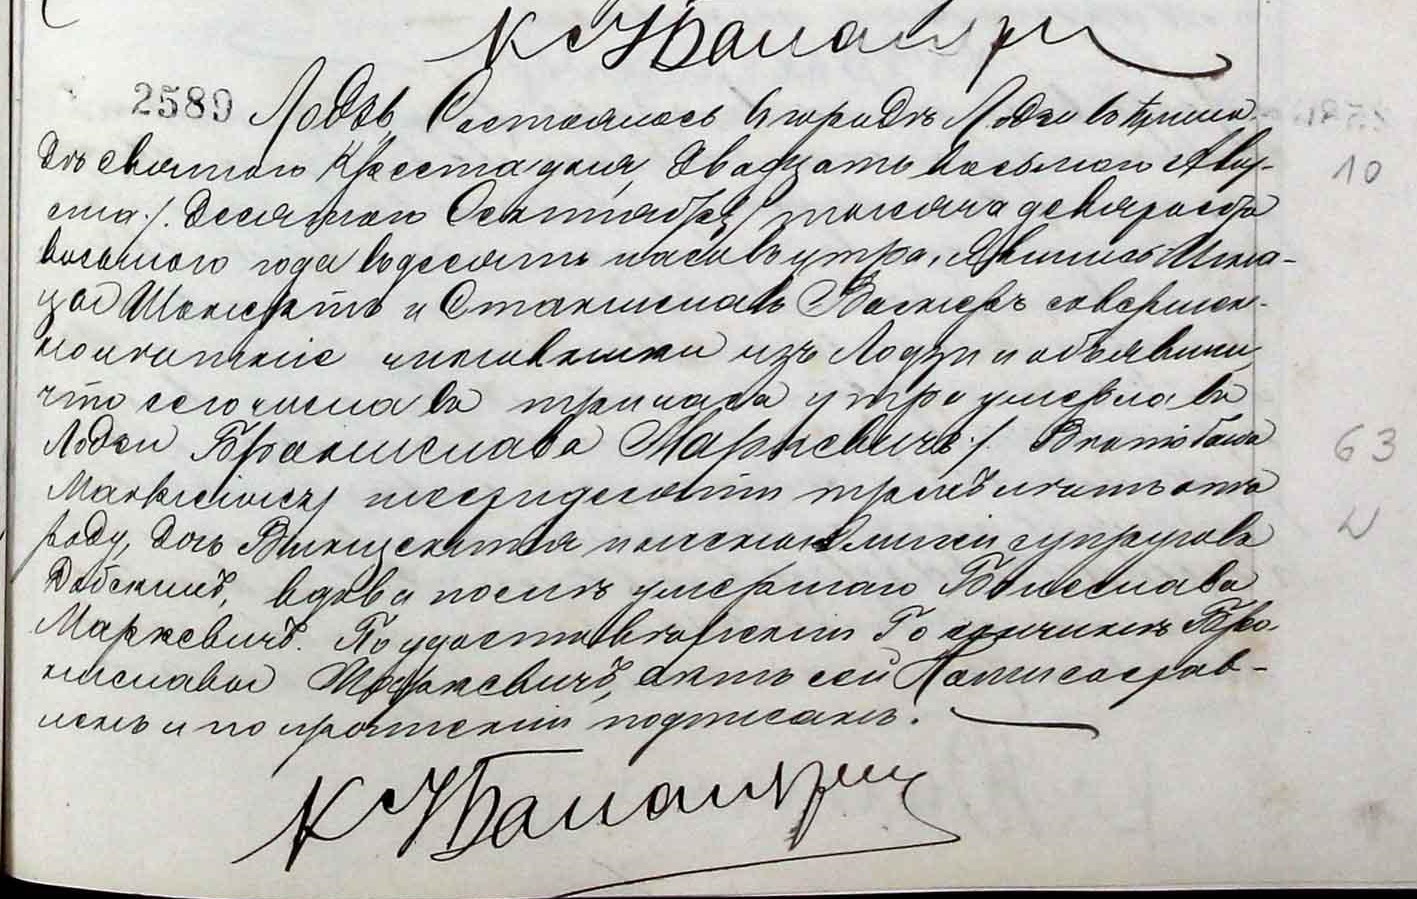 К У Баландри
2589 Лодзь. Состоялось в городе Лодзи в прихо-
де святого Креста дня двадцать восьмого Авгу-
ста /. Десятого Сентября / тысяча девятьсотъ
восьмого года въ десять часовъ утра. Явились Игна-
цы и Станиславъ Вагнеръ совершен-
нолетние чиновники изъ Лодзи и объявили
что сего числа въ три часа утра умерла въ
Лодзи Бронислава Маркевичъ /. Bronisława
Markiewicz шестидесяти трехъ летъ отъ
роду, дочь Викентия и супруговъ
Добскихъ, вдова после умершаго Болеслава
Маркевичъ. По удостоверении о кончине Бро-
ниславы Маркевичъ, актъ сей Нами состав-
ленъ и по прочтении подписанъ.
К У
10
63
W